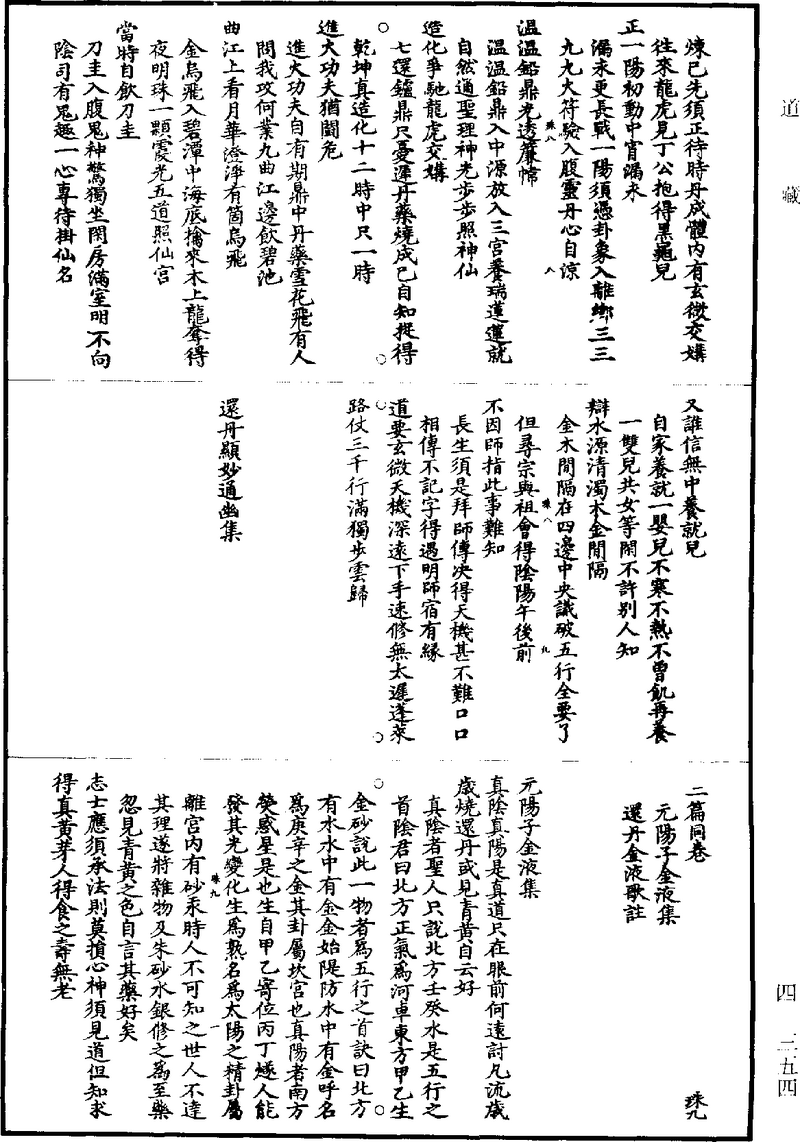 道藏
煉己先須正待時丹成體內有玄微交媾
往來龍虎見丁公抱得黑龜兒
正一陽初動中宵漏永
漏永更長戰一陽須憑卦象入離鄉三三
九九大符驗入腹靈丹心自涼
珠八
八
溫溫鉛鼎光透簾幃
溫溫鉛鼎入中源放入三宮養瑞蓮蓮就
自然通聖理神光步步照神仙
造化爭馳龍虎交媾
七還鑪鼎尺憂運丹藥燒成已自知捉得
乾坤真造化十二時中只一時
進火功夫猶鬪危
進火功夫自有期鼎中丹藥雪花飛有人
問我攻何業九曲江邊飲碧池
曲江上看月華澄淨有箇烏飛
金烏飛入碧潭中海底擒來木上龍奪得
夜明珠一顆霞光五道照仙宮
當時自飲刀圭
刀圭入腹鬼神驚獨坐閑房滿室明不向
陰司有鬼趣一心專待掛仙名
又誰信無中養就兒
自家養就一嬰兒不寒不熱不曾飢再養
一雙兒共女等閑不許別人知
辯水源清濁木金間隔
金木間隔在四邊中央識破五行全要了
珠八
九
但尋宗與祖會得陰陽午後前
不因師指此事難知
長生須是拜師傳決得天機甚不難口口
相傳不記字得遇明師宿有緣
道要玄微天機深遠下手速修無太遲蓬萊
路仗三千行滿獨步雲歸
還丹顯妙通幽集
二篇同卷
珠九
元陽子金液集
還丹金液歌註
元陽子金液集
真陰真陽是真道只在眼前何遠討凡流歲
歲燒還丹或見青黃自云好
真陰者聖人只說北方壬癸水是五行之
首陰君曰北方正氣為河車東方甲乙生
金砂說此一物者為五行之首訣曰北方
有水水中有金金始隄防水中有金呼名
為庚辛之金其卦屬坎宮也真陽者南方
熒惑星是也生自甲乙寄位丙丁燧人能
發其光變化生為熟名為太陽之精卦屬
珠九
一
離宮內有砂汞時人不可知之世人不達
其理遂將雜物及朱砂水銀修之為至藥
忽見青黃之色自言其藥好矣
志士應須承法則莫損心神須見道但知求
得真黃芽人得食之壽無老
四
三五四